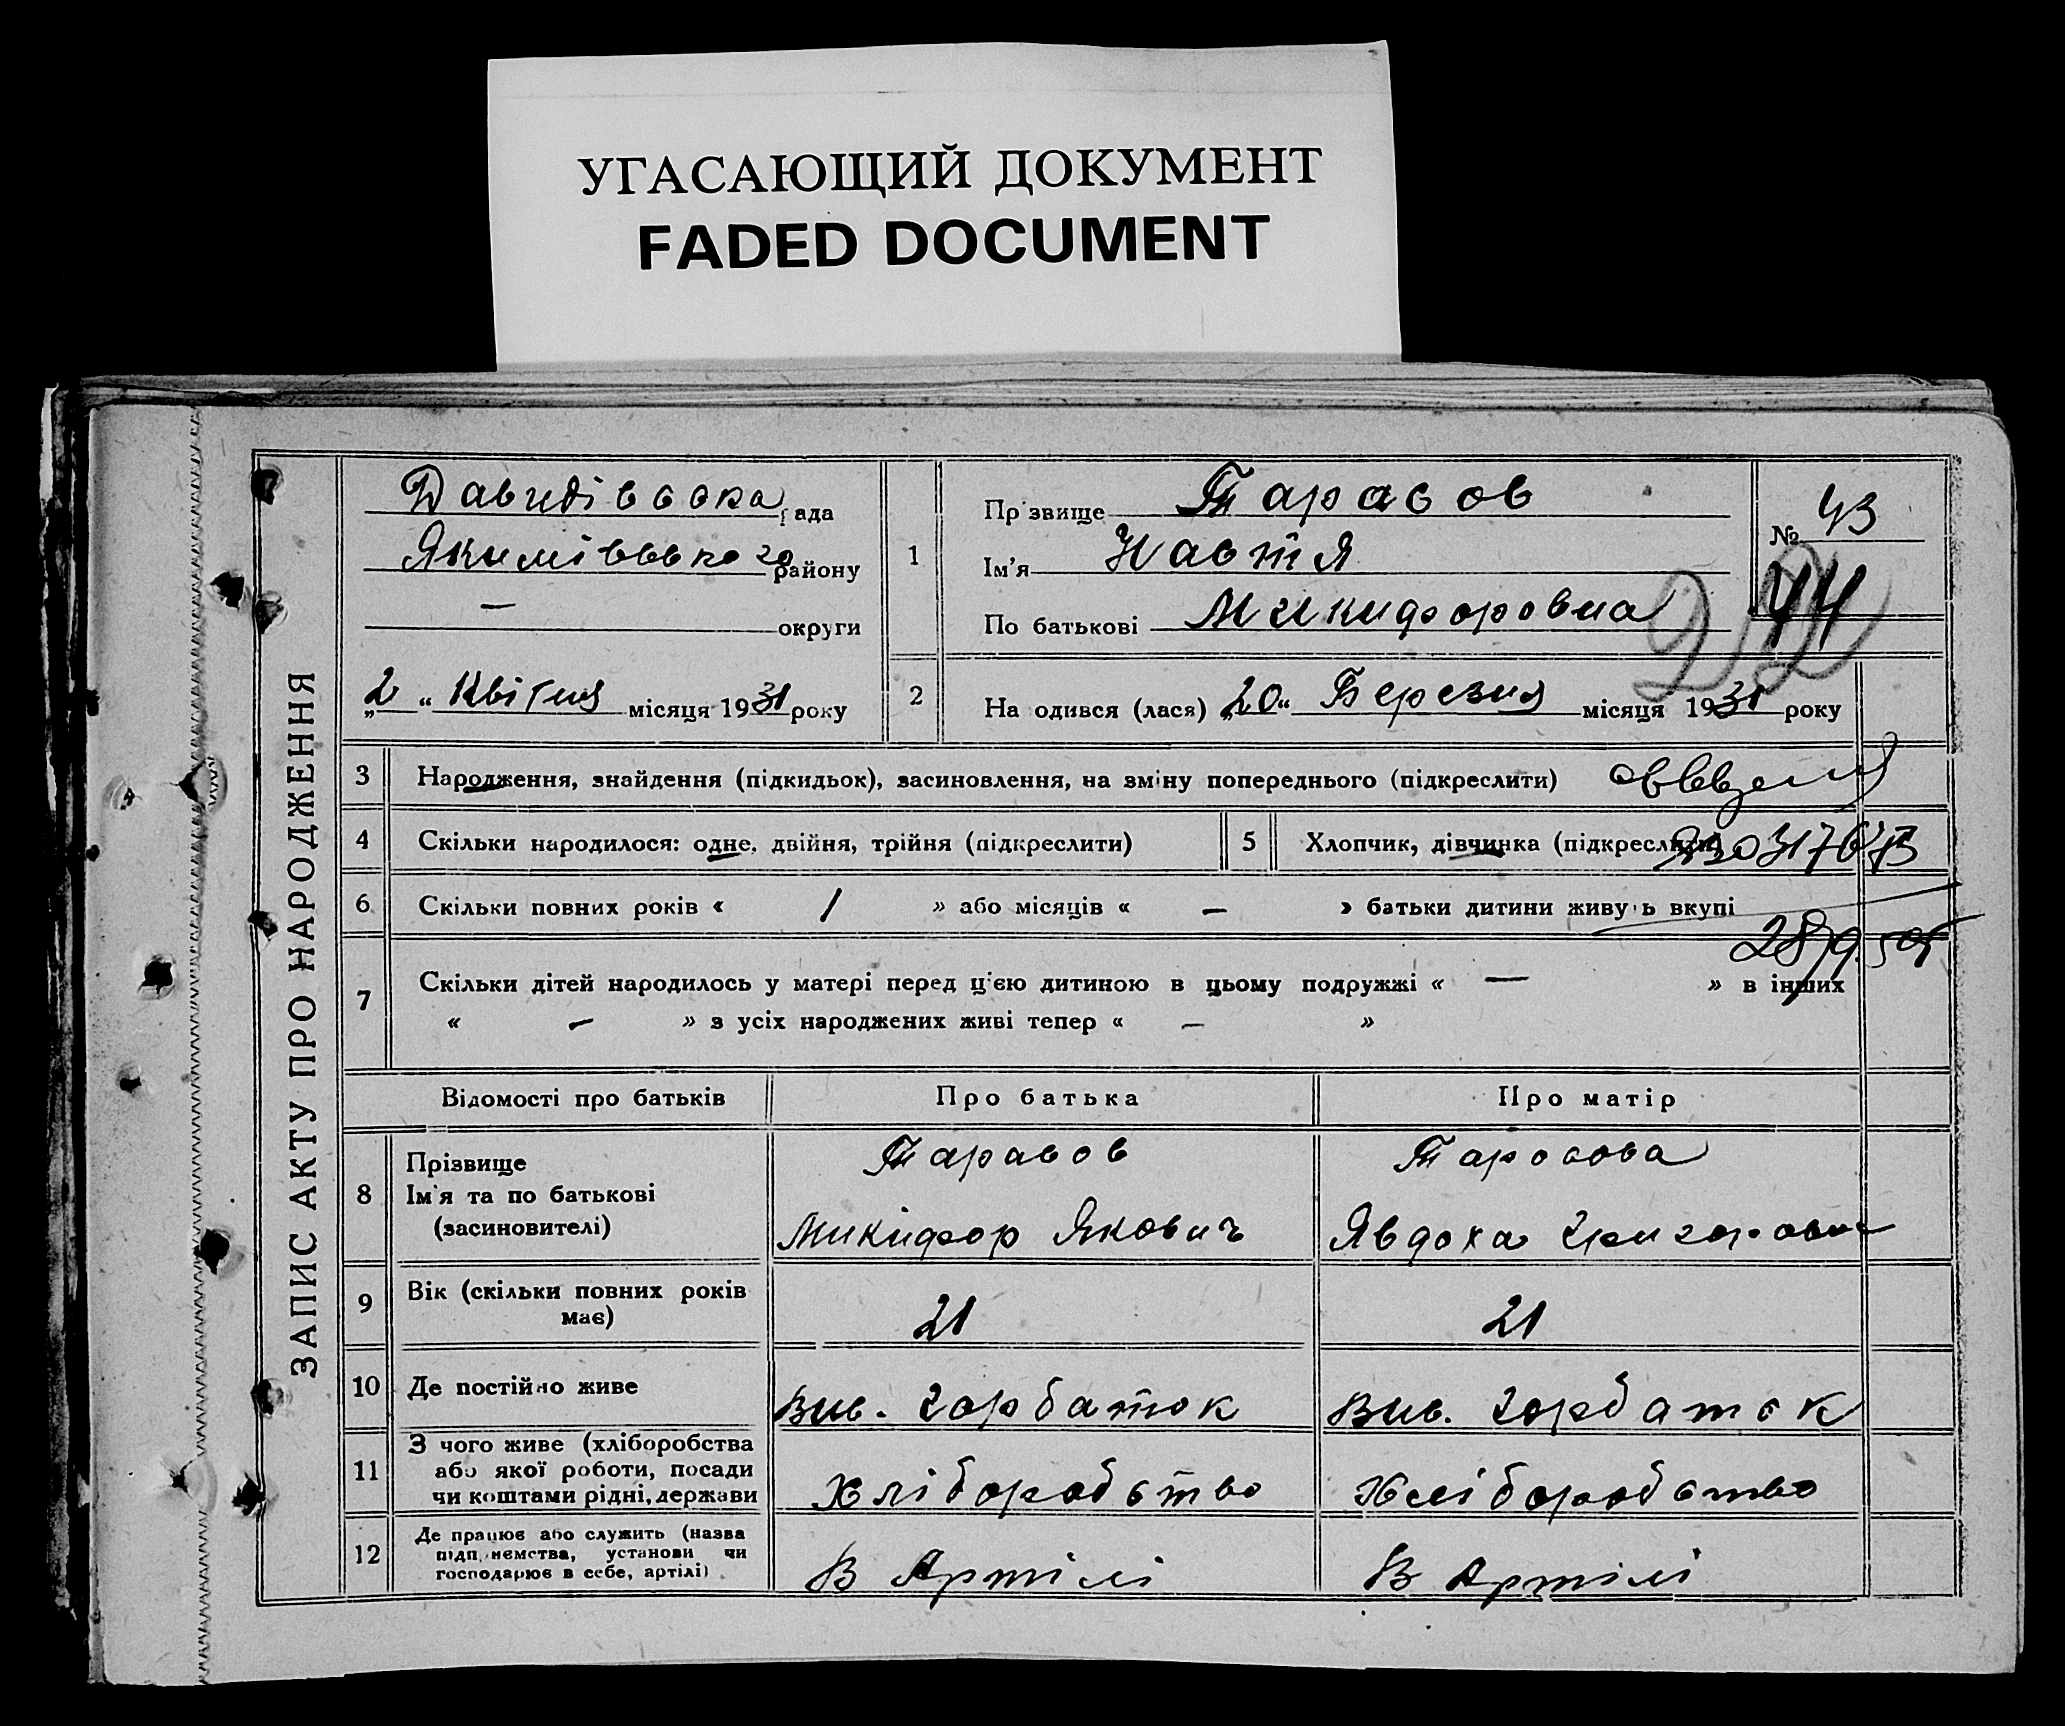 УГАСАЮЩИЙ ДОКУМЕНТ
FADED DOCUMENT
ЗАПИС АКТУ ПРО НАРОДЖЕННЯ
Давидівська рада
Якимівського району
— округи
„2“ Квітня місяця 1931 року
1
Прізвище Тарасов
Ім'я Настя
По батькові Микифоровна
№ 43
44
2
На одився (лася) „20“ Березня місяця 1931 року
3 Народження, знайдення (підкидьок), засиновлення, на зміну попереднього (підкреслити)
4 Скільки народилося: одне, двійня, трійня (підкреслити)
5 Хлопчик, дівчинка (підкреслити)
6 Скільки повних років « 1 » або місяців « — » батьки дитини живуть вкупі
7 Скільки дітей народилось у матері перед ц'єю дитиною в цьому подружжі « — » в інших
« — » з усіх народжених живі тепер « — »
Відомості про батьків Про батька Про матір
8 Прізвище Тарасов Тарасова
Ім'я та по батькові
(засиновителі) Микифор Якович Явдоха Григоровна
9 Вік (скільки повних років
має) 21 21
10 Де постійно живе Вис. Горбаток Вис. Горбаток
11 З чого живе (хліборобства
або якої роботи, посади
чи коштами рідні, держави Хліборобство Хліборобство
12 Де працює або служить (назва
підприємства, установи чи
господарює в себе, артілі) В Артілі В Артілі